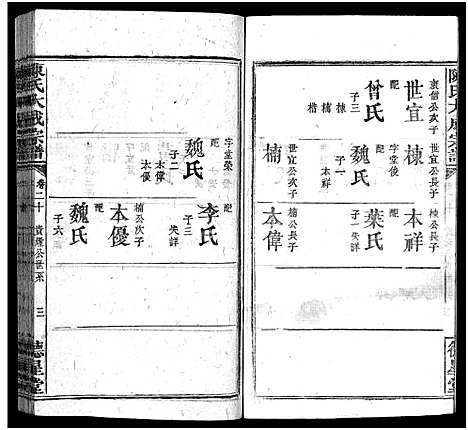 陳氏大成宗譜
世宜
衷僖公次子
配
曾氏
子三
棟
楠
楷
棟
世宜公長子
字堂俊
配
魏氏
子一
本祥
楠
世宜公次子
本祥
棟公長子
配
葉氏
子一失詳
本偉
楠公長子
德星堂
字堂榮
配
魏氏
子二
本偉
本優
配
李氏
子三
失詳
本優
楠公次子
配
魏氏
子六
陳氏大成宗譜
卷二十
公世系
三
德星堂